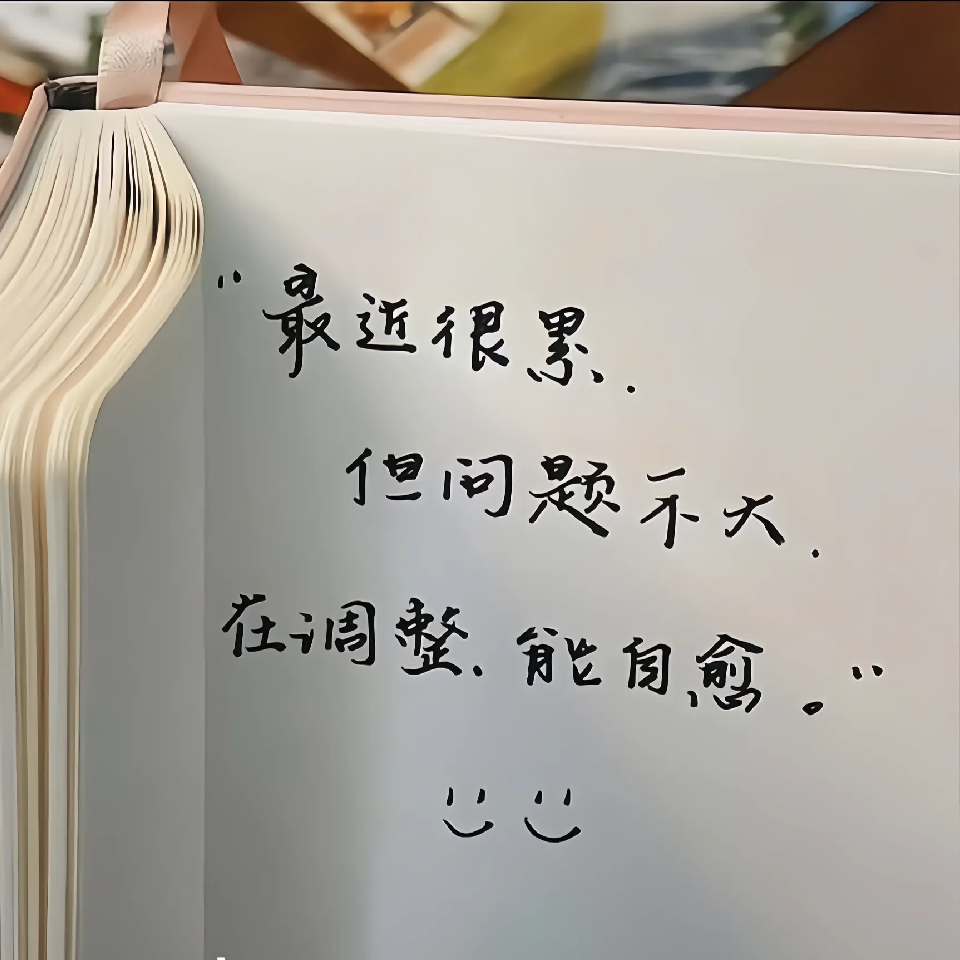 "最近很累.
但问题不大.
在调整.能自愈。"